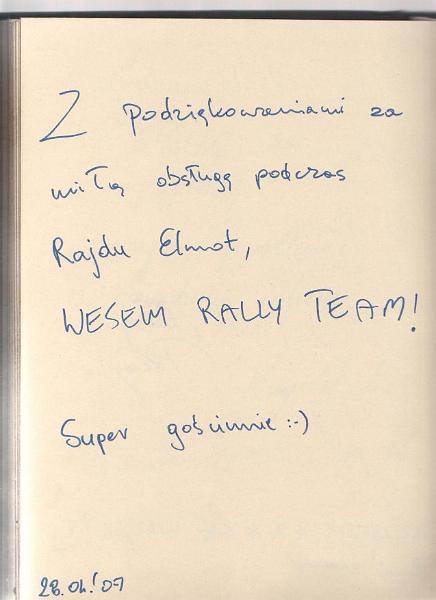 Z podziękowaniami za
miłą obsługę podczas
Rajdu Elmot,
WESEM RALLY TEAM!
Super gościnnie :-)
28.04.'07